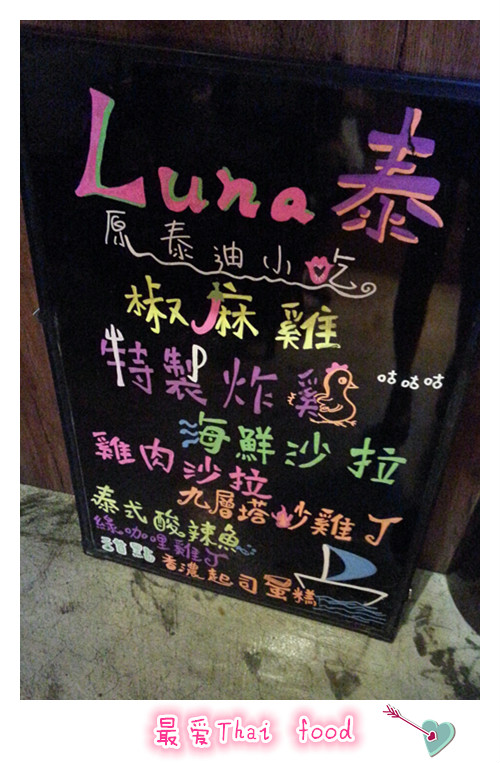 Luna泰
原泰迪小吃
椒麻雞
特製炸雞 咕咕咕
海鮮沙拉
雞肉沙拉
九層塔炒雞丁
泰式酸辣魚
綠咖哩雞丁
甜點 香濃起司蛋糕
最爱Thai food